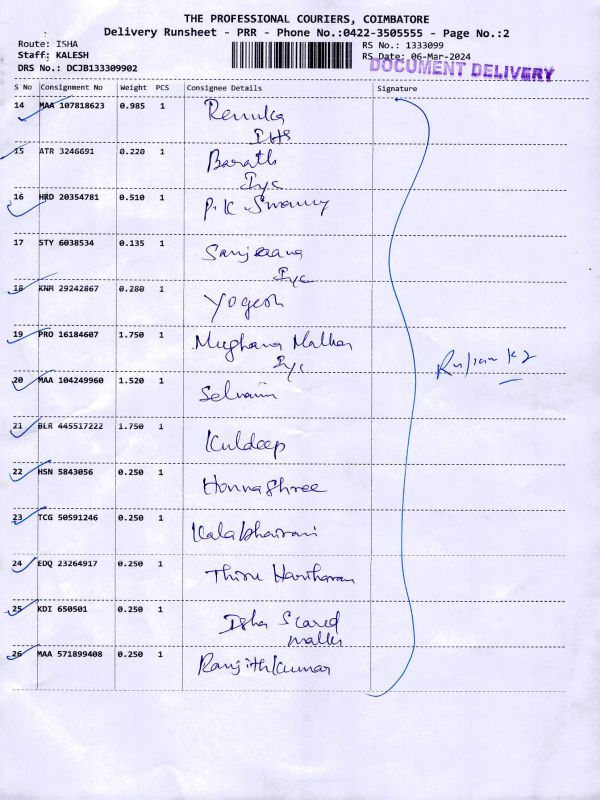 THE PROFESSIONAL COURIERS, COIMBATORE
Delivery Runsheet - PRR - Phone No.:0422-3505555 - Page No.:2
Route: ISHA
Staff: KALESH
DRS No.: DCJB133309902
RS No.: 1333099
RS Date: 06-Mar-2024
DOCUMENT DELIVERY
S No Consignment No Weight PCS Consignee Details Signature
14 MAA 107818623 0.985 1 Renuka
IHS
15 ATR 3246691 0.220 1 Barath
Iyc
16 HRD 20354781 0.510 1 P.K Swamy
17 STY 6038534 0.135 1 Sanjeaana
Iyc
18 KNM 29242867 0.280 1 Yogesh
19 PRO 16184607 1.750 1 Mughana Malhar
Iyc
20 MAA 104249960 1.520 1 Selvam
21 BLR 445517222 1.750 1 Kuldeep
22 HSN 5843056 0.250 1 Honnashree
23 TCG 50591246 0.250 1 Kalabhairavi
24 EDQ 23264917 0.250 1 Thiru Hariharan
25 KDI 650501 0.250 1 Isha Scared
malles
26 MAA 571899408 0.250 1 Ranjithkumar